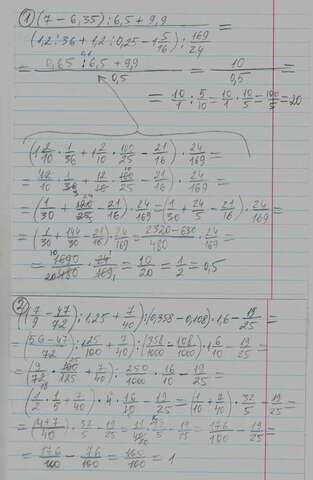 1) (7 - 6,35) : 6,5 + 9,9 =
(1,2 : 36 + 1,2 : 0,25 - 1 5/16) : 169/24
= 0,65 : 6,5 + 9,9 / 0,5 = 10 / 0,5 =
= 10/1 : 5/10 = 10/1 · 10/5 = 100/5 = 20
(1 2/10 · 1/36 + 1 2/10 · 100/25 - 21/16) · 24/169 =
= (12/10 · 1/36 + 12/10 · 100/25 - 21/16) · 24/169 =
= (1/30 + 120/25 - 21/16) · 24/169 = (1/30 + 24/5 - 21/16) · 24/169 =
= (1/30 + 144/30 - 21/16) · 24/169 = 2320 - 630 / 480 · 24/169 =
= 1690/480 · 24/169 = 10/20 = 1/2 = 0,5
2) (7/9 - 47/72) : 1,25 + 7/40) : (0,358 - 0,108) · 1,6 - 19/25 =
= (56 - 47/72) : 125/100 + 7/40) : (358/1000 - 108/1000) · 1 6/10 - 19/25 =
= (9/72 · 100/125 + 7/40) : 250/1000 · 16/10 - 19/25 =
(1/2 · 1/5 + 7/40) · 4 · 16/10 - 19/25 = (1/10 + 7/40) · 32/5 - 19/25 =
= (4+7/40) · 32/5 - 19/25 = 11/40 · 32/5 - 19/25 = 176/100 - 19/25 =
= 176/100 - 76/100 = 100/100 = 1